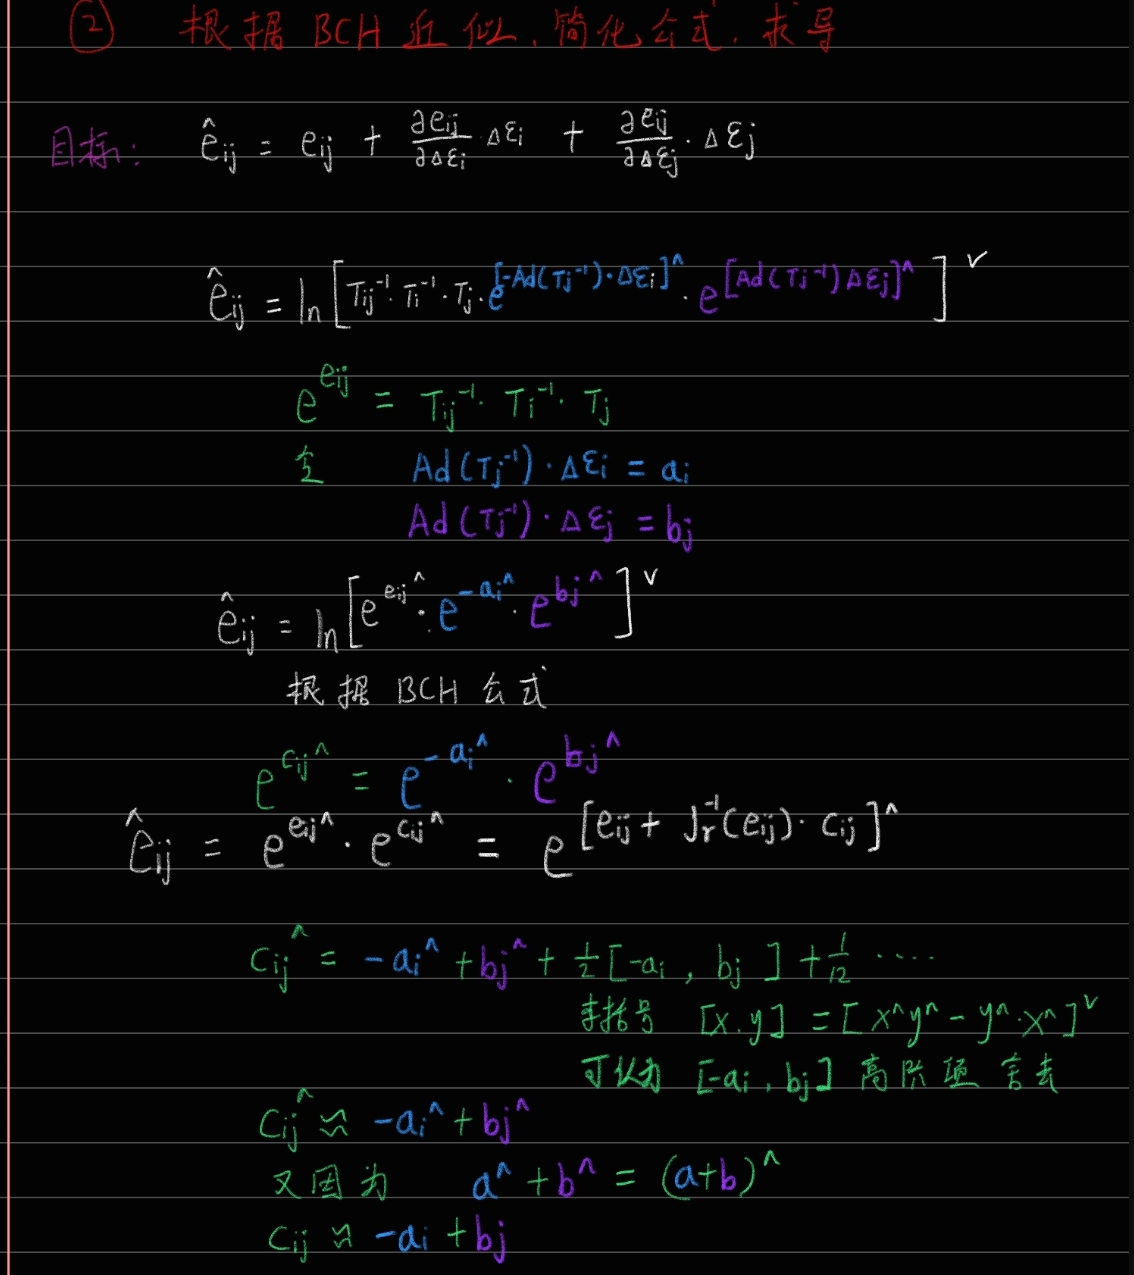 ② 根据 BCH 近似, 简化公式, 求导
目标: ê_ij = e_ij + ∂e_ij/∂Δε_i · Δε_i + ∂e_ij/∂Δε_j · Δε_j
ê_ij = ln[T_ij⁻¹ · T_i⁻¹ · T_j · e^[-Ad(T_j⁻¹)·Δε_i]^ · e^[Ad(T_j⁻¹)Δε_j]^]^∨
e^e_ij = T_ij⁻¹ · T_i⁻¹ · T_j
令 Ad(T_j⁻¹)·Δε_i = a_i
Ad(T_j⁻¹)·Δε_j = b_j
ê_ij = ln[e^e_ij^ · e^-a_i^ · e^b_j^]^∨
根据 BCH 公式
e^c_ij^ = e^-a_i^ · e^b_j^
ê_ij = e^e_ij^ · e^c_ij^ = e^[e_ij + J_r⁻¹(e_ij)·c_ij]^
c_ij^ = -a_i^ + b_j^ + 1/2[-a_i, b_j] + 1/12 ····
李括号 [x.y] = [x^y^ - y^·x^]^∨
可认为 [-a_i, b_j] 高阶项 舍去
c_ij^ ≈ -a_i^ + b_j^
又因为 a^ + b^ = (a+b)^
c_ij ≈ -a_i + b_j